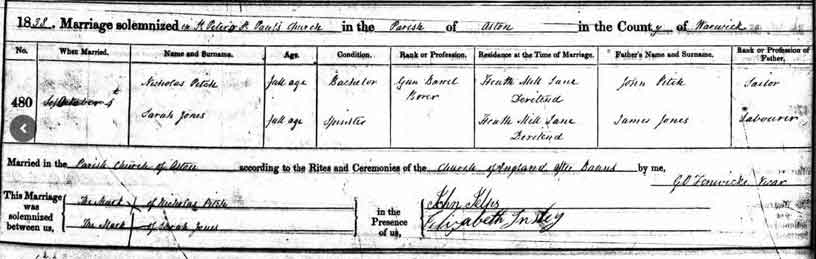 1838. Marriage solemnized in St Peter & St Paul's Church in the Parish of Aston in the County of Warwick
No. When Married. Name and Surname. Age. Condition. Rank or Profession. Residence at the Time of Marriage. Father's Name and Surname. Rank or Profession of Father.
Nicholas full age Bachelor Gun Barrel Heath Mill Lane John Tailor
480 Borer Deritend
Sarah Jones full age Spinster Heath Mill Lane James Jones Labourer
Deritend
Married in the Parish Church of Aston according to the Rites and Ceremonies of the Church of England after Banns by me,
G O Fenwicke Vicar
This Marriage was solemnized between us,
The Mark of Nicholas
The Mark of Sarah Jones
in the Presence of us,
John
Elizabeth Insley